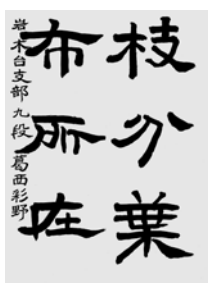 枝分葉
布所在
岩木台支部 九段 葛西彩野